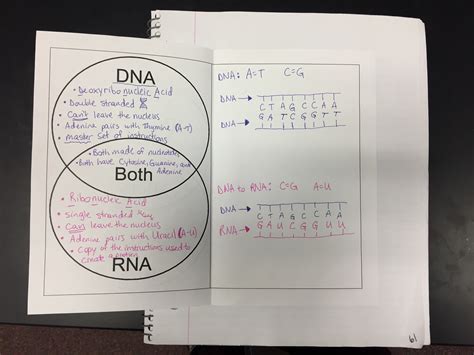 DNA
• Deoxyribonucleic Acid
• Double stranded
• Can't leave the nucleus
• Adenine pairs with Thymine (A-T)
• Master Set of instructions
• Both made of nucleotides
• Both have Cytosine, Guanine, and Adenine
Both
• Ribonucleic Acid
• single stranded
• Can leave the nucleus
• Adenine pairs with Uracil (A-U)
• Copy of the instructions used to
create a protein
RNA
DNA: A=T C=G
DNA
C T A G C C A A
G A T C G G T T
DNA
DNA to RNA: C=G A=U
DNA
C T A G C C A A
RNA
G A U C G G U U
61